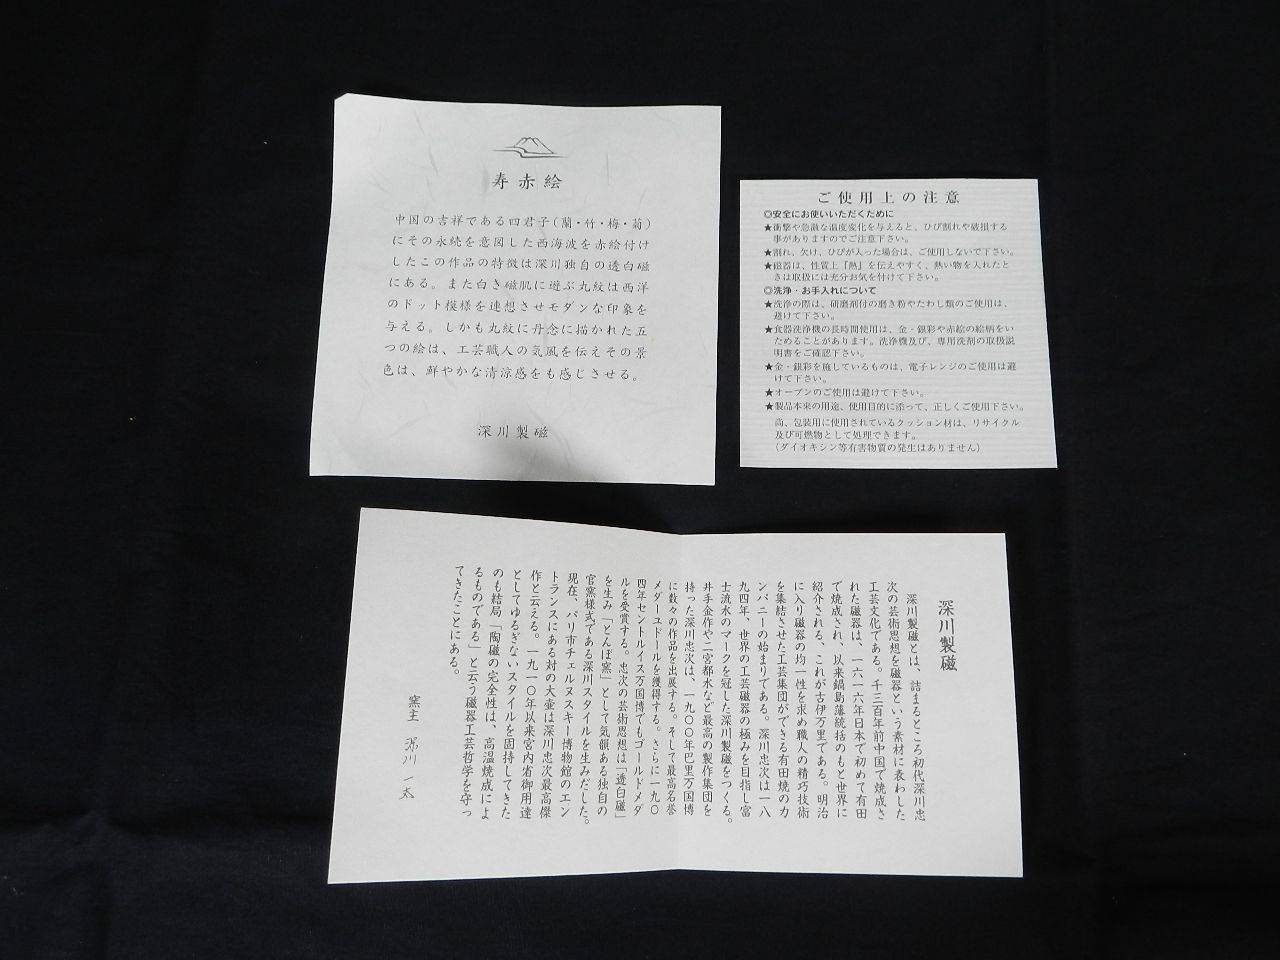 寿赤絵
中国の吉祥である四君子(蘭・竹・梅・菊)
にその永続を意図した西海波を赤絵付け
したこの作品の特徴は深川独自の透白磁
にある。また白き磁肌に遊ぶ丸紋は西洋
のドット模様を連想させモダンな印象を
与える。しかも丸紋に丹念に描かれた五
つの絵は、工芸職人の気風を伝えその景
色は、鮮やかな清涼感をも感じさせる。
深川製磁
ご使用上の注意
◎安全にお使いいただくために
★衝撃や急激な温度変化を与えると、ひび割れや破損する
事がありますのでご注意下さい。
★割れ、欠け、ひびが入った場合は、ご使用しないで下さい。
★磁器は、性質上「熱」を伝えやすく、熱い物を入れたと
きは取扱には充分お気を付けて下さい。
◎洗浄・お手入れについて
★洗浄の際は、研磨剤付の磨き粉やたわし類のご使用は、
避けて下さい。
★食器洗浄機の長時間使用は、金・銀彩や赤絵の絵柄をい
ためることがあります。洗浄機及び、専用洗剤の取扱説
明書をご確認下さい。
★金・銀彩を施しているものは、電子レンジのご使用は避
けて下さい。
★オーブンのご使用は避けて下さい。
★製品本来の用途、使用目的に添って、正しくご使用下さい。
尚、包装用に使用されているクッション材は、リサイクル
及び可燃物として処理できます。
(ダイオキシン等有害物質の発生はありません)
深川製磁
深川製磁とは、詰まるところ初代深川忠
次の芸術思想を磁器という素材に表わした
工芸文化である。千三百年前中国で焼成さ
れた磁器は、一六一六年日本で初めて有田
で焼成され、以来鍋島藩統括のもと世界に
紹介される、これが古伊万里である。明治
に入り磁器の均一性を求め職人の精巧技術
を集結させた工芸集団ができる有田焼のカ
ンパニーの始まりである。深川忠次は一八
九四年、世界の工芸磁器の極みを目指し富
士流水のマークを冠した深川製磁をつくる。
井手金作や二宮都水など最高の製作集団を
持った深川忠次は、一九〇〇年巴里万国博
に数々の作品を出展する。そして最高名誉
メダーユドールを獲得する。さらに一九〇
四年セントルイス万国博でもゴールドメダ
ルを受賞する。忠次の芸術思想は「透白磁」
を生み「とんぼ窯」として気韻ある独自の
官窯様式である深川スタイルを生みだした。
現在、パリ市チェルヌスキー博物館のエン
トランスにある対の大壷は深川忠次最高傑
作と云える。一九一〇年以来宮内省御用達
としてゆるぎないスタイルを固持してきた
のも結局「陶磁の完全性は、高温焼成によ
るものである」と云う磁器工芸哲学を守っ
てきたことにある。
窯主 深川一太